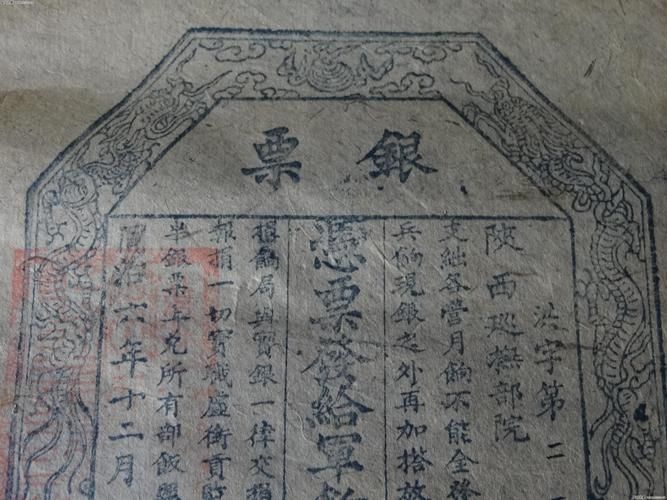 銀票
洪字第二
陝西巡撫部院
支絀各營月餉不能全發
兵餉現銀之外再加搭放
憑票發給軍餉
捐餉局與實銀一律交捐
報捐一切實職虛銜貢監
半銀票年免所有部飯照
同治六年十二月